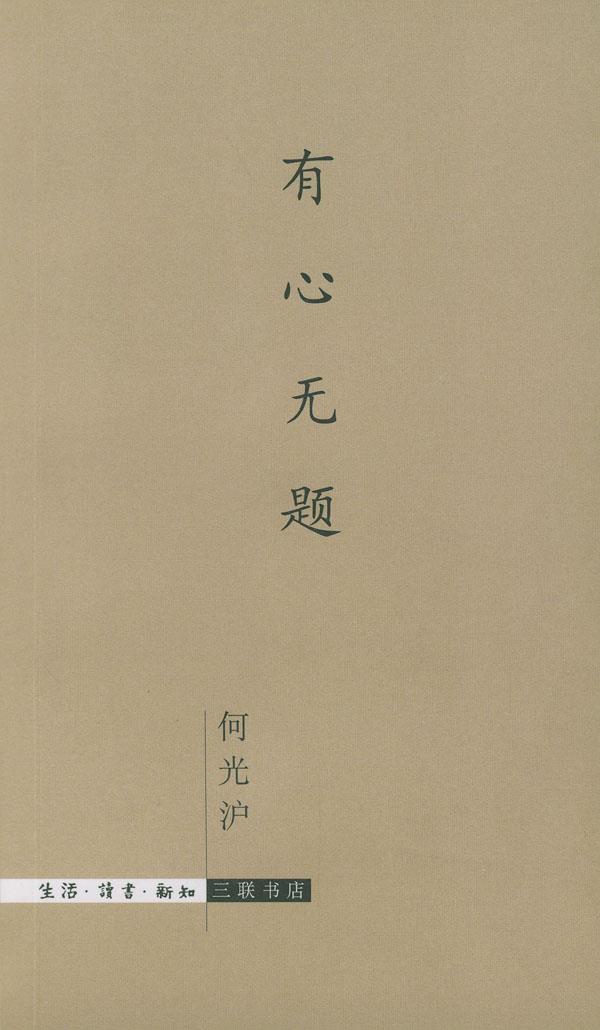 有心无题
何光沪
生活·讀書·新知 三联书店